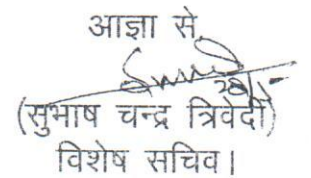 आज्ञा से,
(सुभाष चन्द्र त्रिवेदी)
विशेष सचिव।